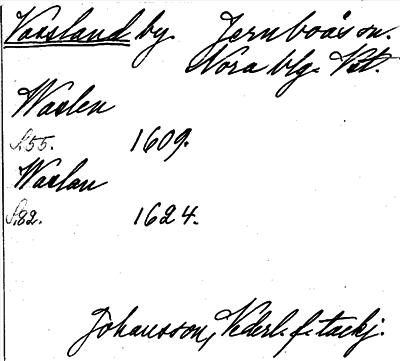 Vassland by. Jernboås sn.
Nora blg. Vstl.
Waslen
S. 55. 1609.
Waslan
S. 82. 1624.
Johansson, Nederl. f. tackj.